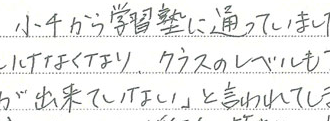 小4から学習塾に通っていまし
いけなくなり クラスのレベルも
が出来ていけない」と言われてし